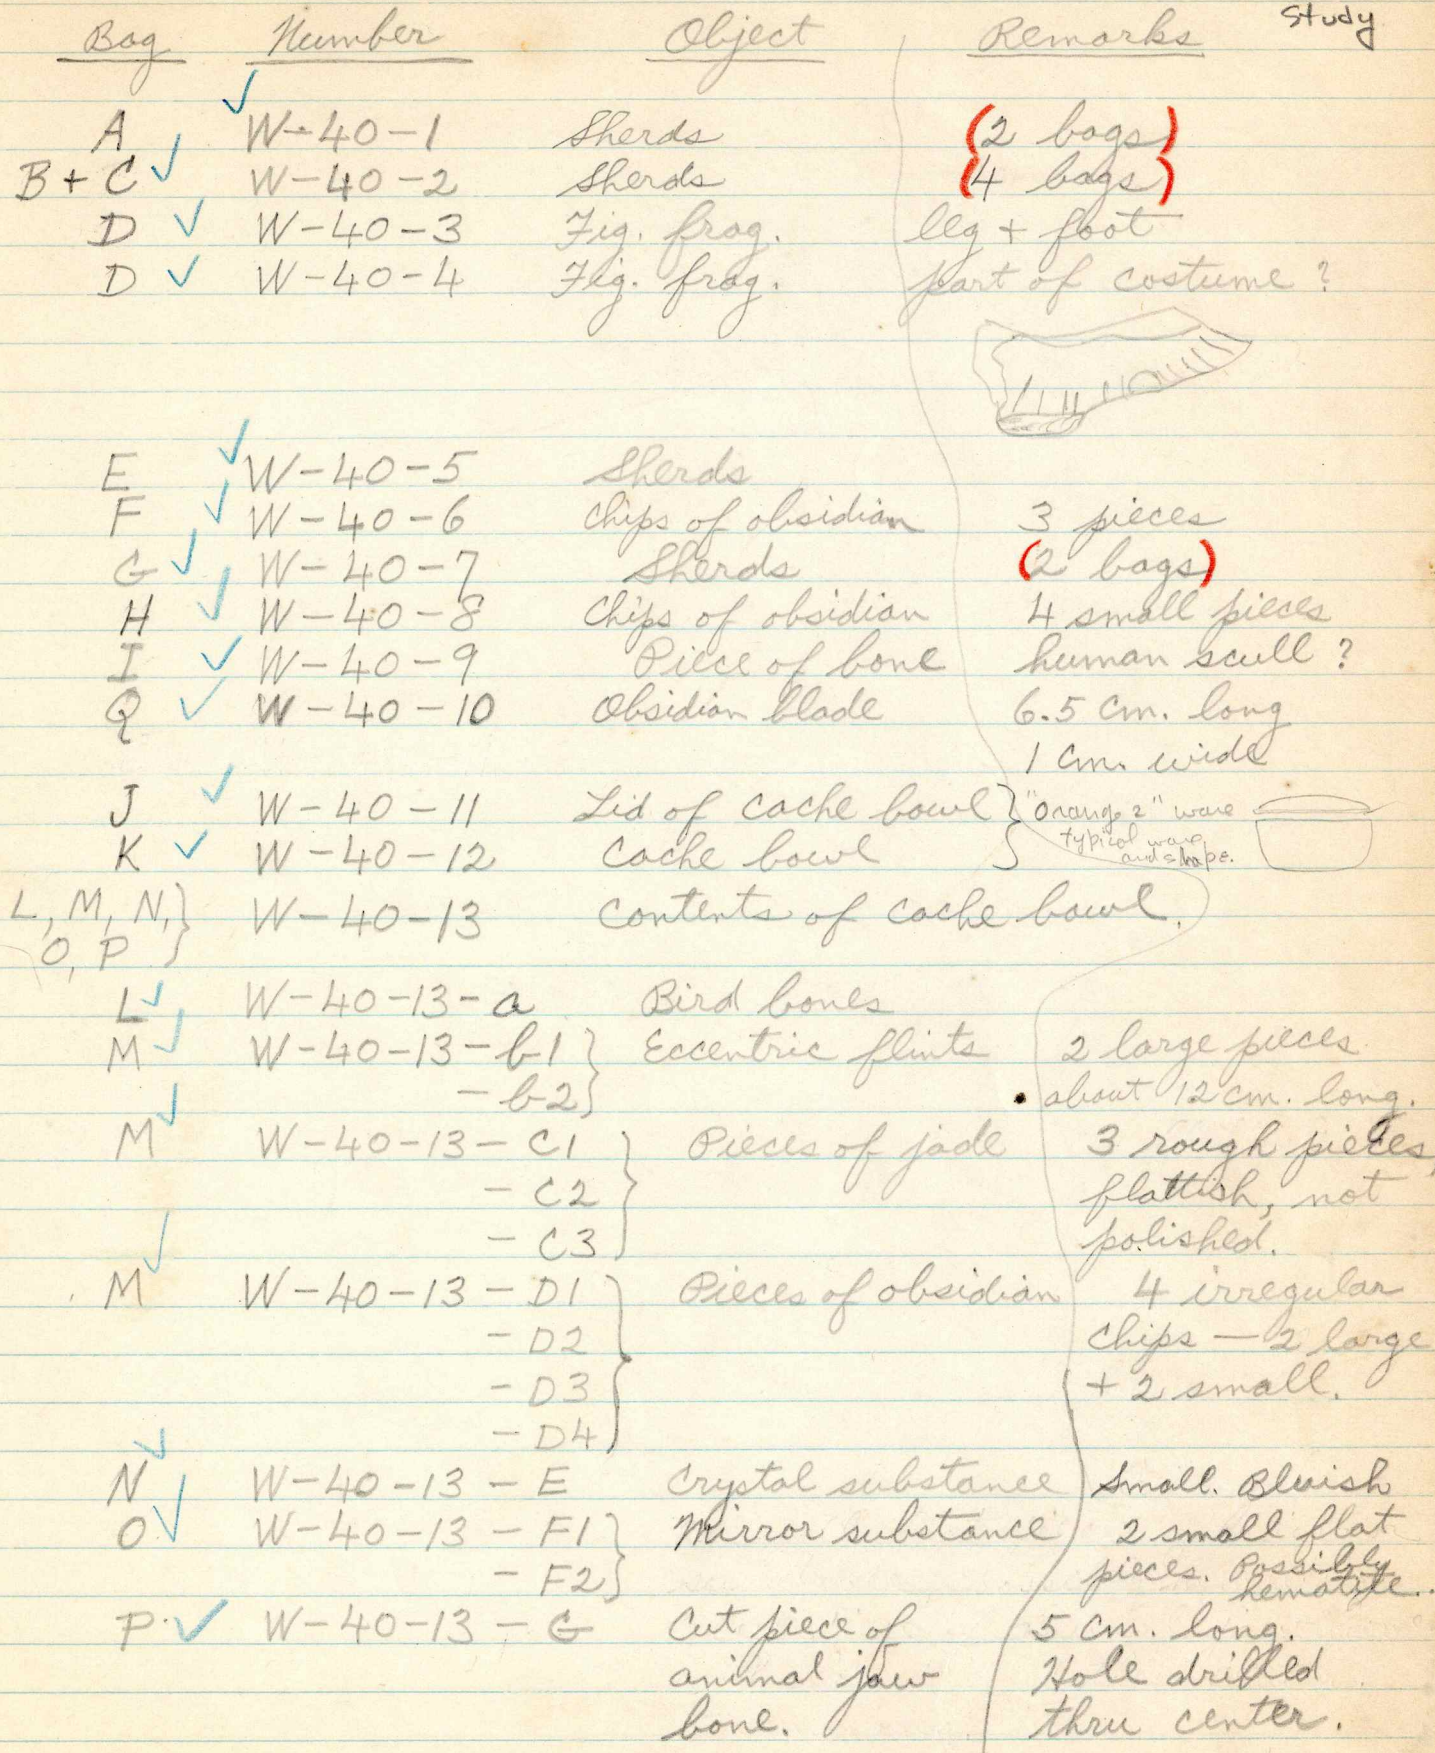 Study
Bag Number Object Remarks
A W-40-1 Sherds (2 bags)
B + C W-40-2 Sherds (4 bags)
D W-40-3 Fig. frag. leg + foot
D W-40-4 Fig. frag. part of costume ?
E W-40-5 Sherds
F W-40-6 Chips of obsidian 3 pieces
G W-40-7 Sherds (2 bags)
H W-40-8 Chips of obsidian 4 small pieces
I W-40-9 Piece of bone human scull ?
Q W-40-10 Obsidian blade 6.5 cm. long
1 cm. wide
J W-40-11 Lid of cache bowl } "Orange 2" ware
K W-40-12 Cache bowl typical ware
and shape.
L, M, N, } W-40-13 Contents of cache bowl.
O, P
L W-40-13-a Bird bones
M W-40-13-b1 } Eccentric flints 2 large pieces
-b2 about 12 cm. long.
M W-40-13-C1 } Pieces of jade 3 rough pieces,
-C2 flattish, not
-C3 polished.
M W-40-13-D1 } Pieces of obsidian 4 irregular
-D2 chips — 2 large
-D3 + 2 small.
-D4
N W-40-13-E Crystal substance Small. Bluish
O W-40-13-F1 } Mirror substance 2 small flat
-F2 pieces. Possibly
hematite.
P W-40-13-G Cut piece of 5 cm. long.
animal jaw Hole drilled
bone. thru center.